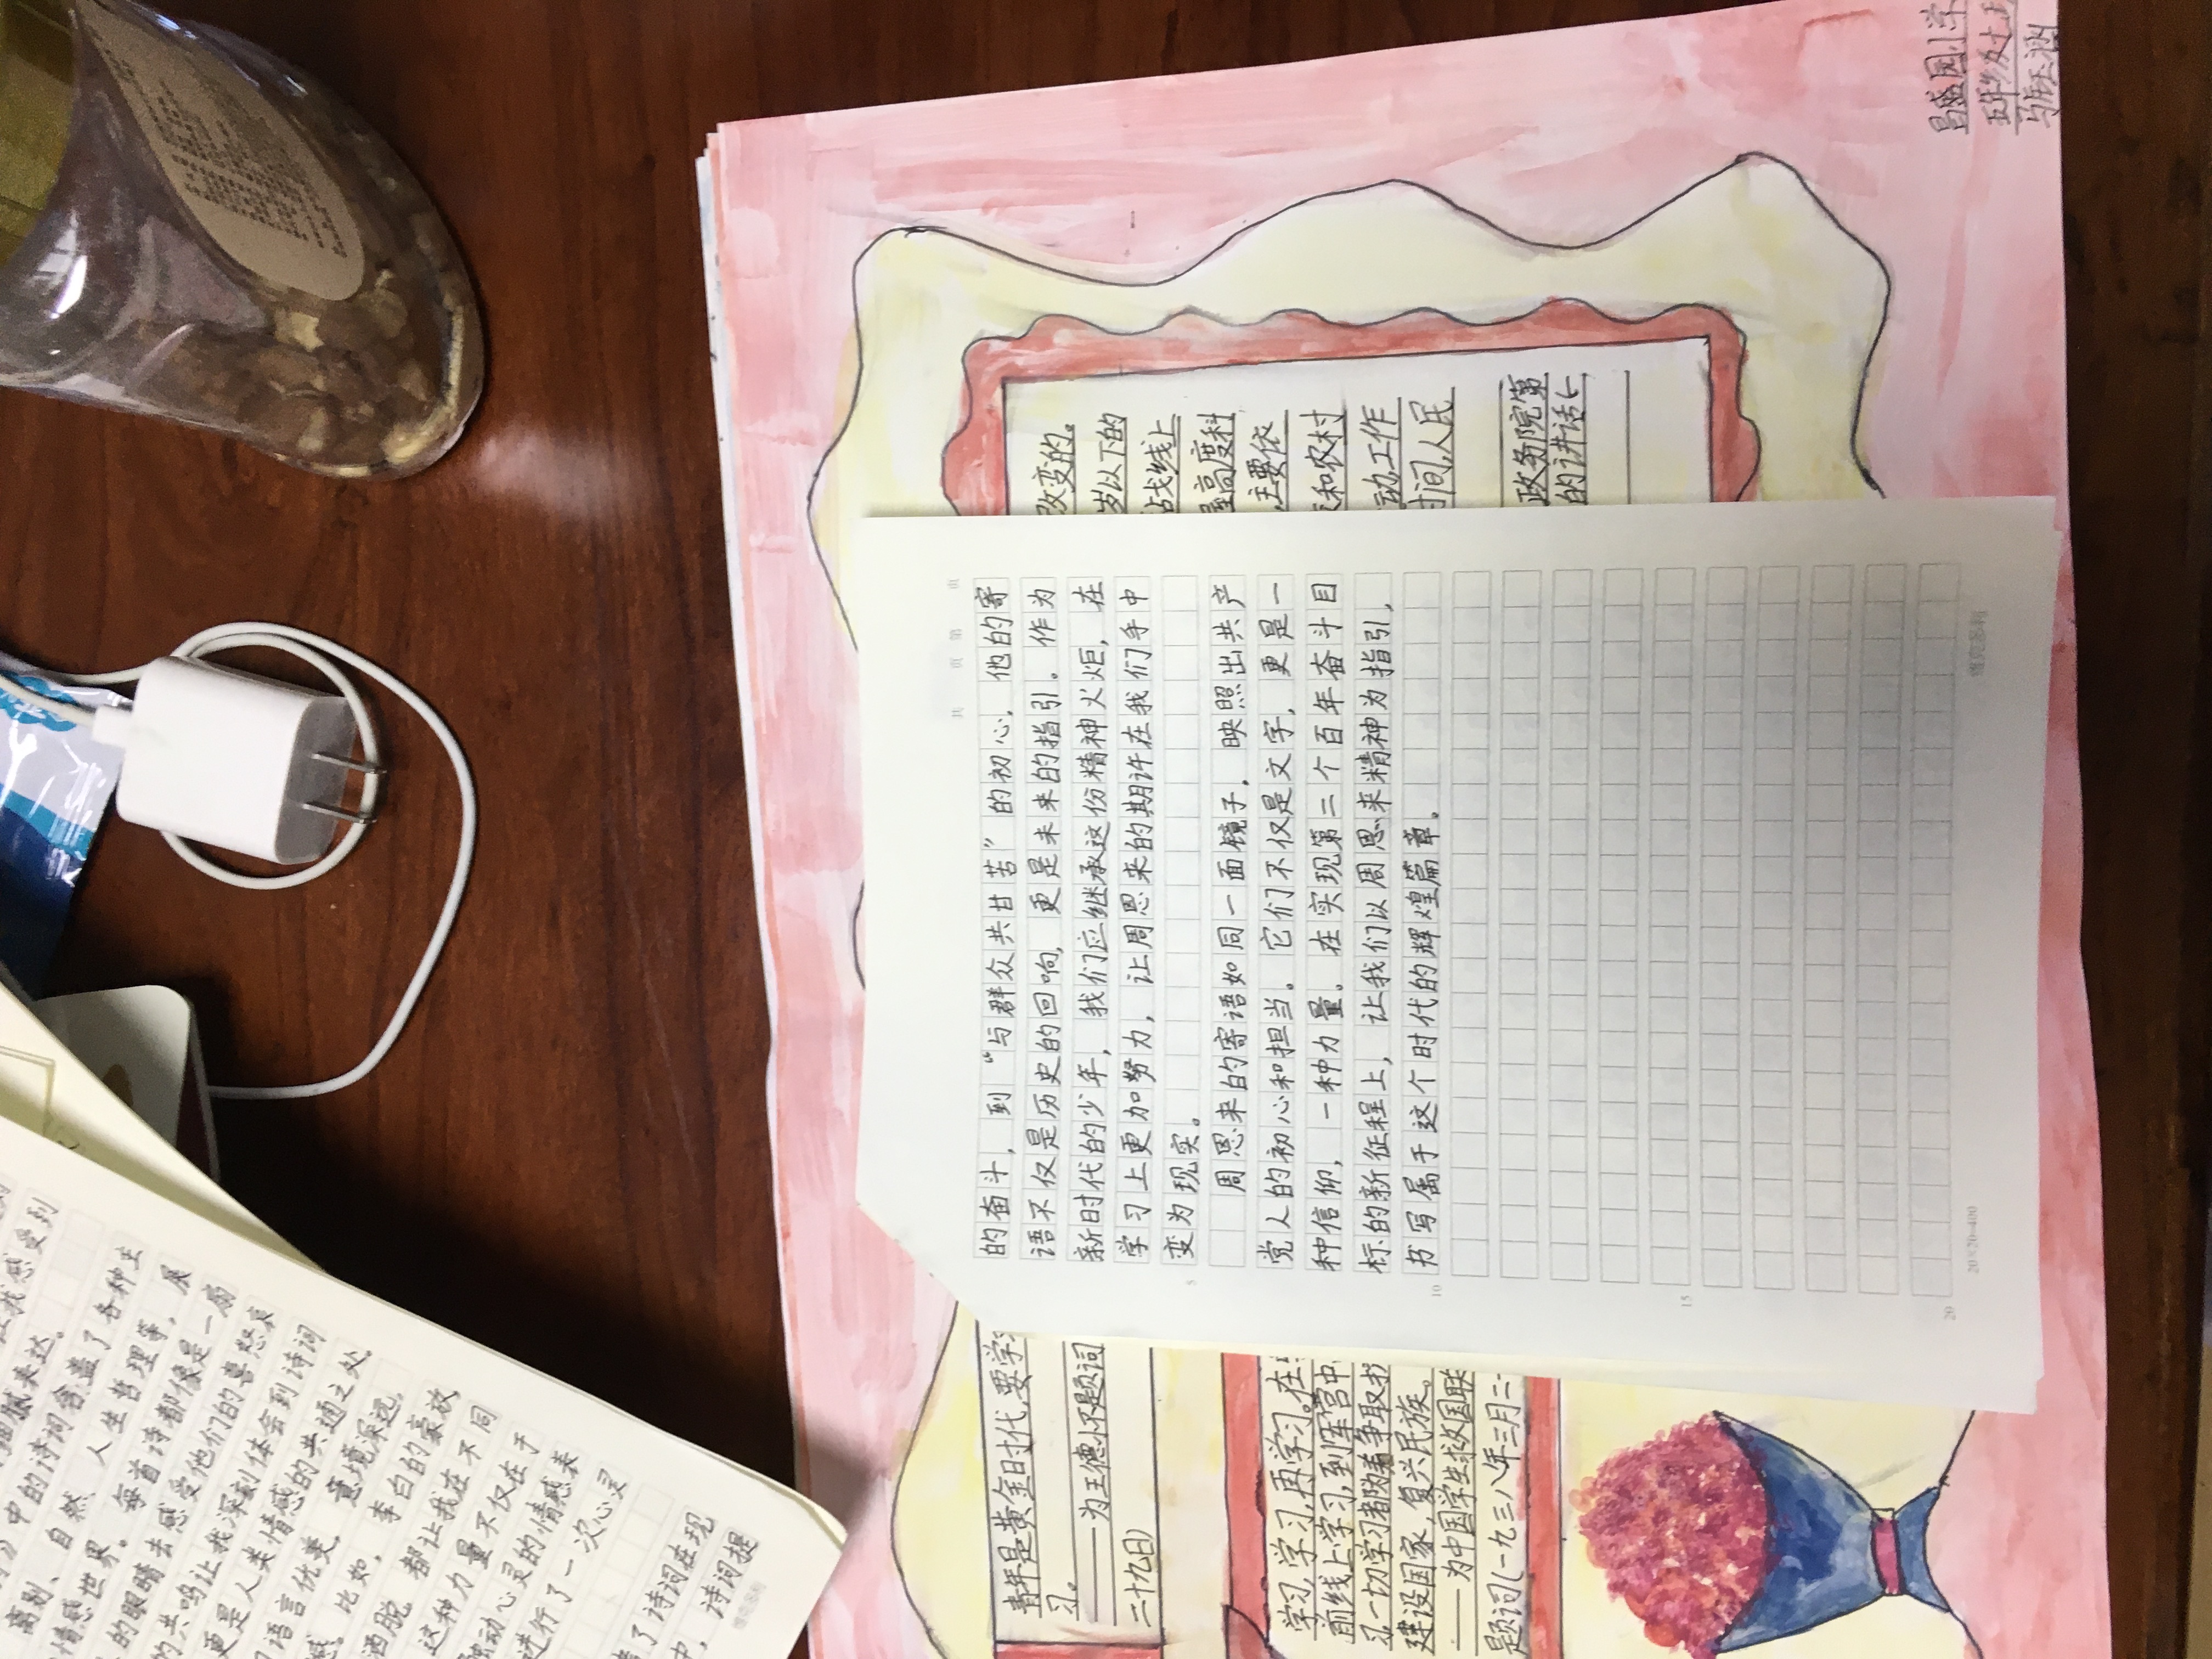 昌盛园小学
共 页 第 页
的奋斗，到“与群众共甘苦”的初心，他的寄
语不仅是历史的回响，更是未来的指引。作为
新时代的少年，我们应继承这份精神火炬，在
学习上更加努力，让周恩来的期许在我们手中
变为现实。
周恩来的寄语如同一面镜子，映照出共产
党人的初心和担当。它们不仅是文字，更是一
种信仰，一种力量。在实现第二个百年奋斗目
标的新征程上，让我们以周恩来精神为指引，
书写属于这个时代的辉煌篇章。
5
10
15
20
20×20=400
改变的。
岁以下的
占戈线上
至高度科
主要依
和农村
动工作
时间,人民
政务院第
的讲话七
青年是黄金时代,要学
习。
——为王德怀题词
二十九日)
学习,学习,再学习。在
前线上学习,到军营中
一切学习者都为着争取抗
建设国家,复兴民族。
——为中国学生救国联
题词(一九三八年三月二
我感受到
细腻表达。
中的诗词含盖了各种主
离别、自然、人生哲理等，展
情感世界。每首诗都像是一扇
的眼睛去感受他们的喜怒哀
的共鸣让我深刻体会到诗词
更是人类情感的共通之处
语言优美，意境深远，
感。比如，李白的豪放
洒脱，都让我在不同
这种力量不仅在于
触动心灵的情感表
进行了一次心灵
了诗词在现
中，诗词提